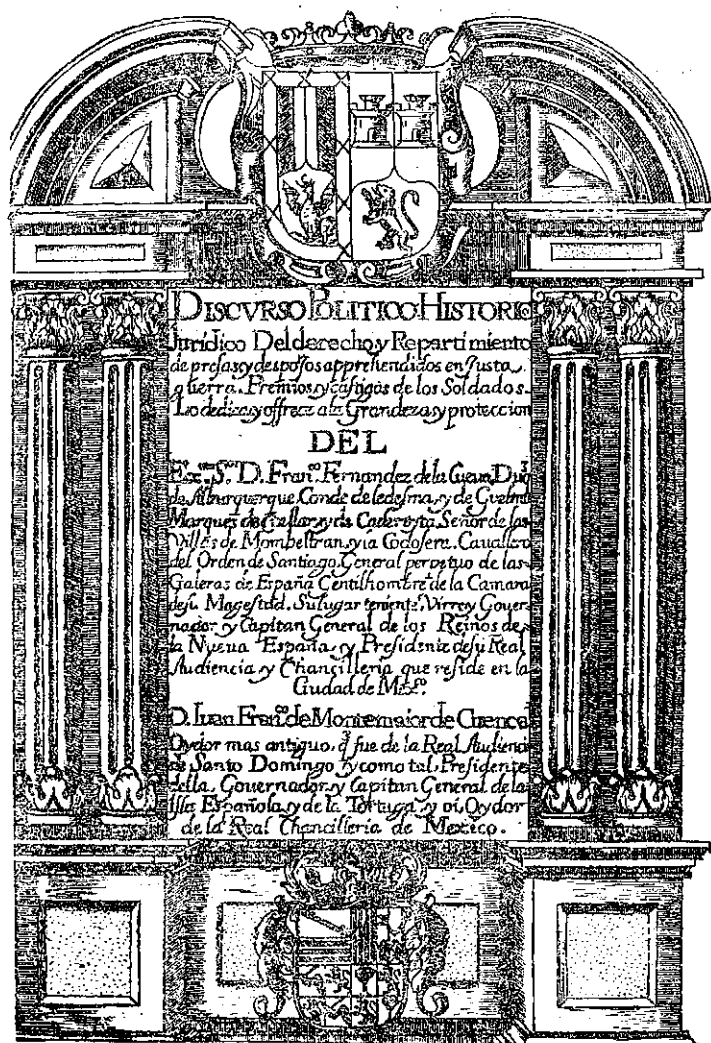 DISCVRSO POLITICO HISTORIC
Juridico Del derecho y Repartimiento
de presas y despojos apprehendidos en Justa
guerra. Premios y castigos de los Soldados.
Lo dedica y offrece ala Grandeza y proteccion
DEL
Exᵐᵒ. Sʳ. D. Franᶜᵒ. Fernandez de la Cueva Duq̃
de Alburquerque. Conde de ledesma, y de Guelma
Marques de Cuellar y de Cadereyta Señor de las
Villas de Mombeltran, y la Codosera. Cavallero
del Orden de Santiago. General perpetuo de las
Galeras de España Gentilhombre de la Camara
desu Magestad. Sulugar teniente, Virrey Gouer-
nador y Capitan General de los Reinos de
la Nueua España, y Presidente desu Real
Audiencia, y Chancilleria que reside en la
Ciudad de Mexᶜᵒ.
D. Iuan Franᶜᵒ. de Montemaior de Cuenca
Oydor mas antiguo, q̃ fue de la Real Audienci
de Santo Domingo y como tal, Presidente
della, Governador, y Capitan General de la
Isla Española, y de la Tortuga, y oi, Oydor
de la Real Chancilleria de Mexico.